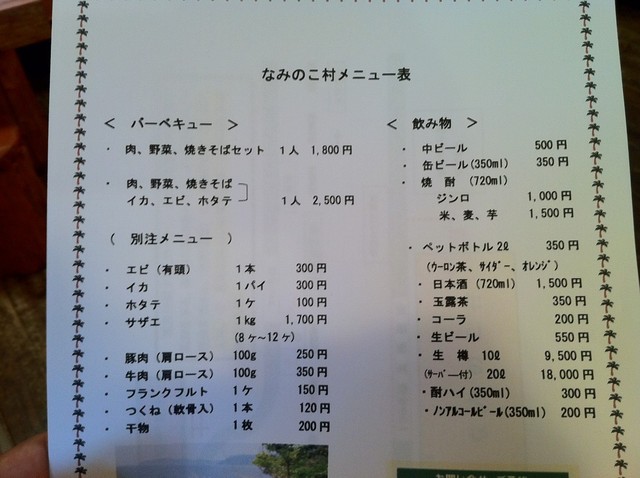 なみのこ村メニュー表
＜ バーベキュー ＞
・ 肉、野菜、焼きそばセット 1人 1,800円
・ 肉、野菜、焼きそば
イカ、エビ、ホタテ 1人 2,500円
（ 別注メニュー ）
・ エビ（有頭） 1本 300円
・ イカ 1パイ 300円
・ ホタテ 1ケ 100円
・ サザエ 1kg 1,700円
(8ヶ～12ヶ)
・ 豚肉（肩ロース） 100g 250円
・ 牛肉（肩ロース） 100g 350円
・ フランクフルト 1ケ 150円
・ つくね（軟骨入） 1本 120円
・ 干物 1枚 200円
＜ 飲み物 ＞
・ 中ビール 500円
・ 缶ビール(350ml) 350円
・ 焼 酎 (720ml)
ジンロ 1,000円
米、麦、芋 1,500円
・ ペットボトル2ℓ 350円
(ｳｰﾛﾝ茶、ｻｲﾀﾞｰ、ｵﾚﾝｼﾞ)
・ 日本酒 (720ml) 1,500円
・ 玉露茶 350円
・ コーラ 200円
・ 生ビール 550円
・ 生 樽 10ℓ 9,500円
(ｻｰﾊﾞｰ付) 20ℓ 18,000円
・酎ハイ(350ml) 300円
・ﾉﾝｱﾙｺｰﾙﾋﾞｰﾙ(350ml) 200円